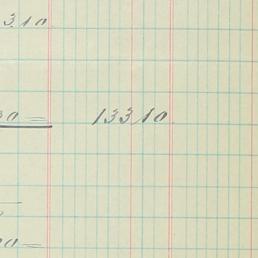 3.10
00 = 13310
00 =